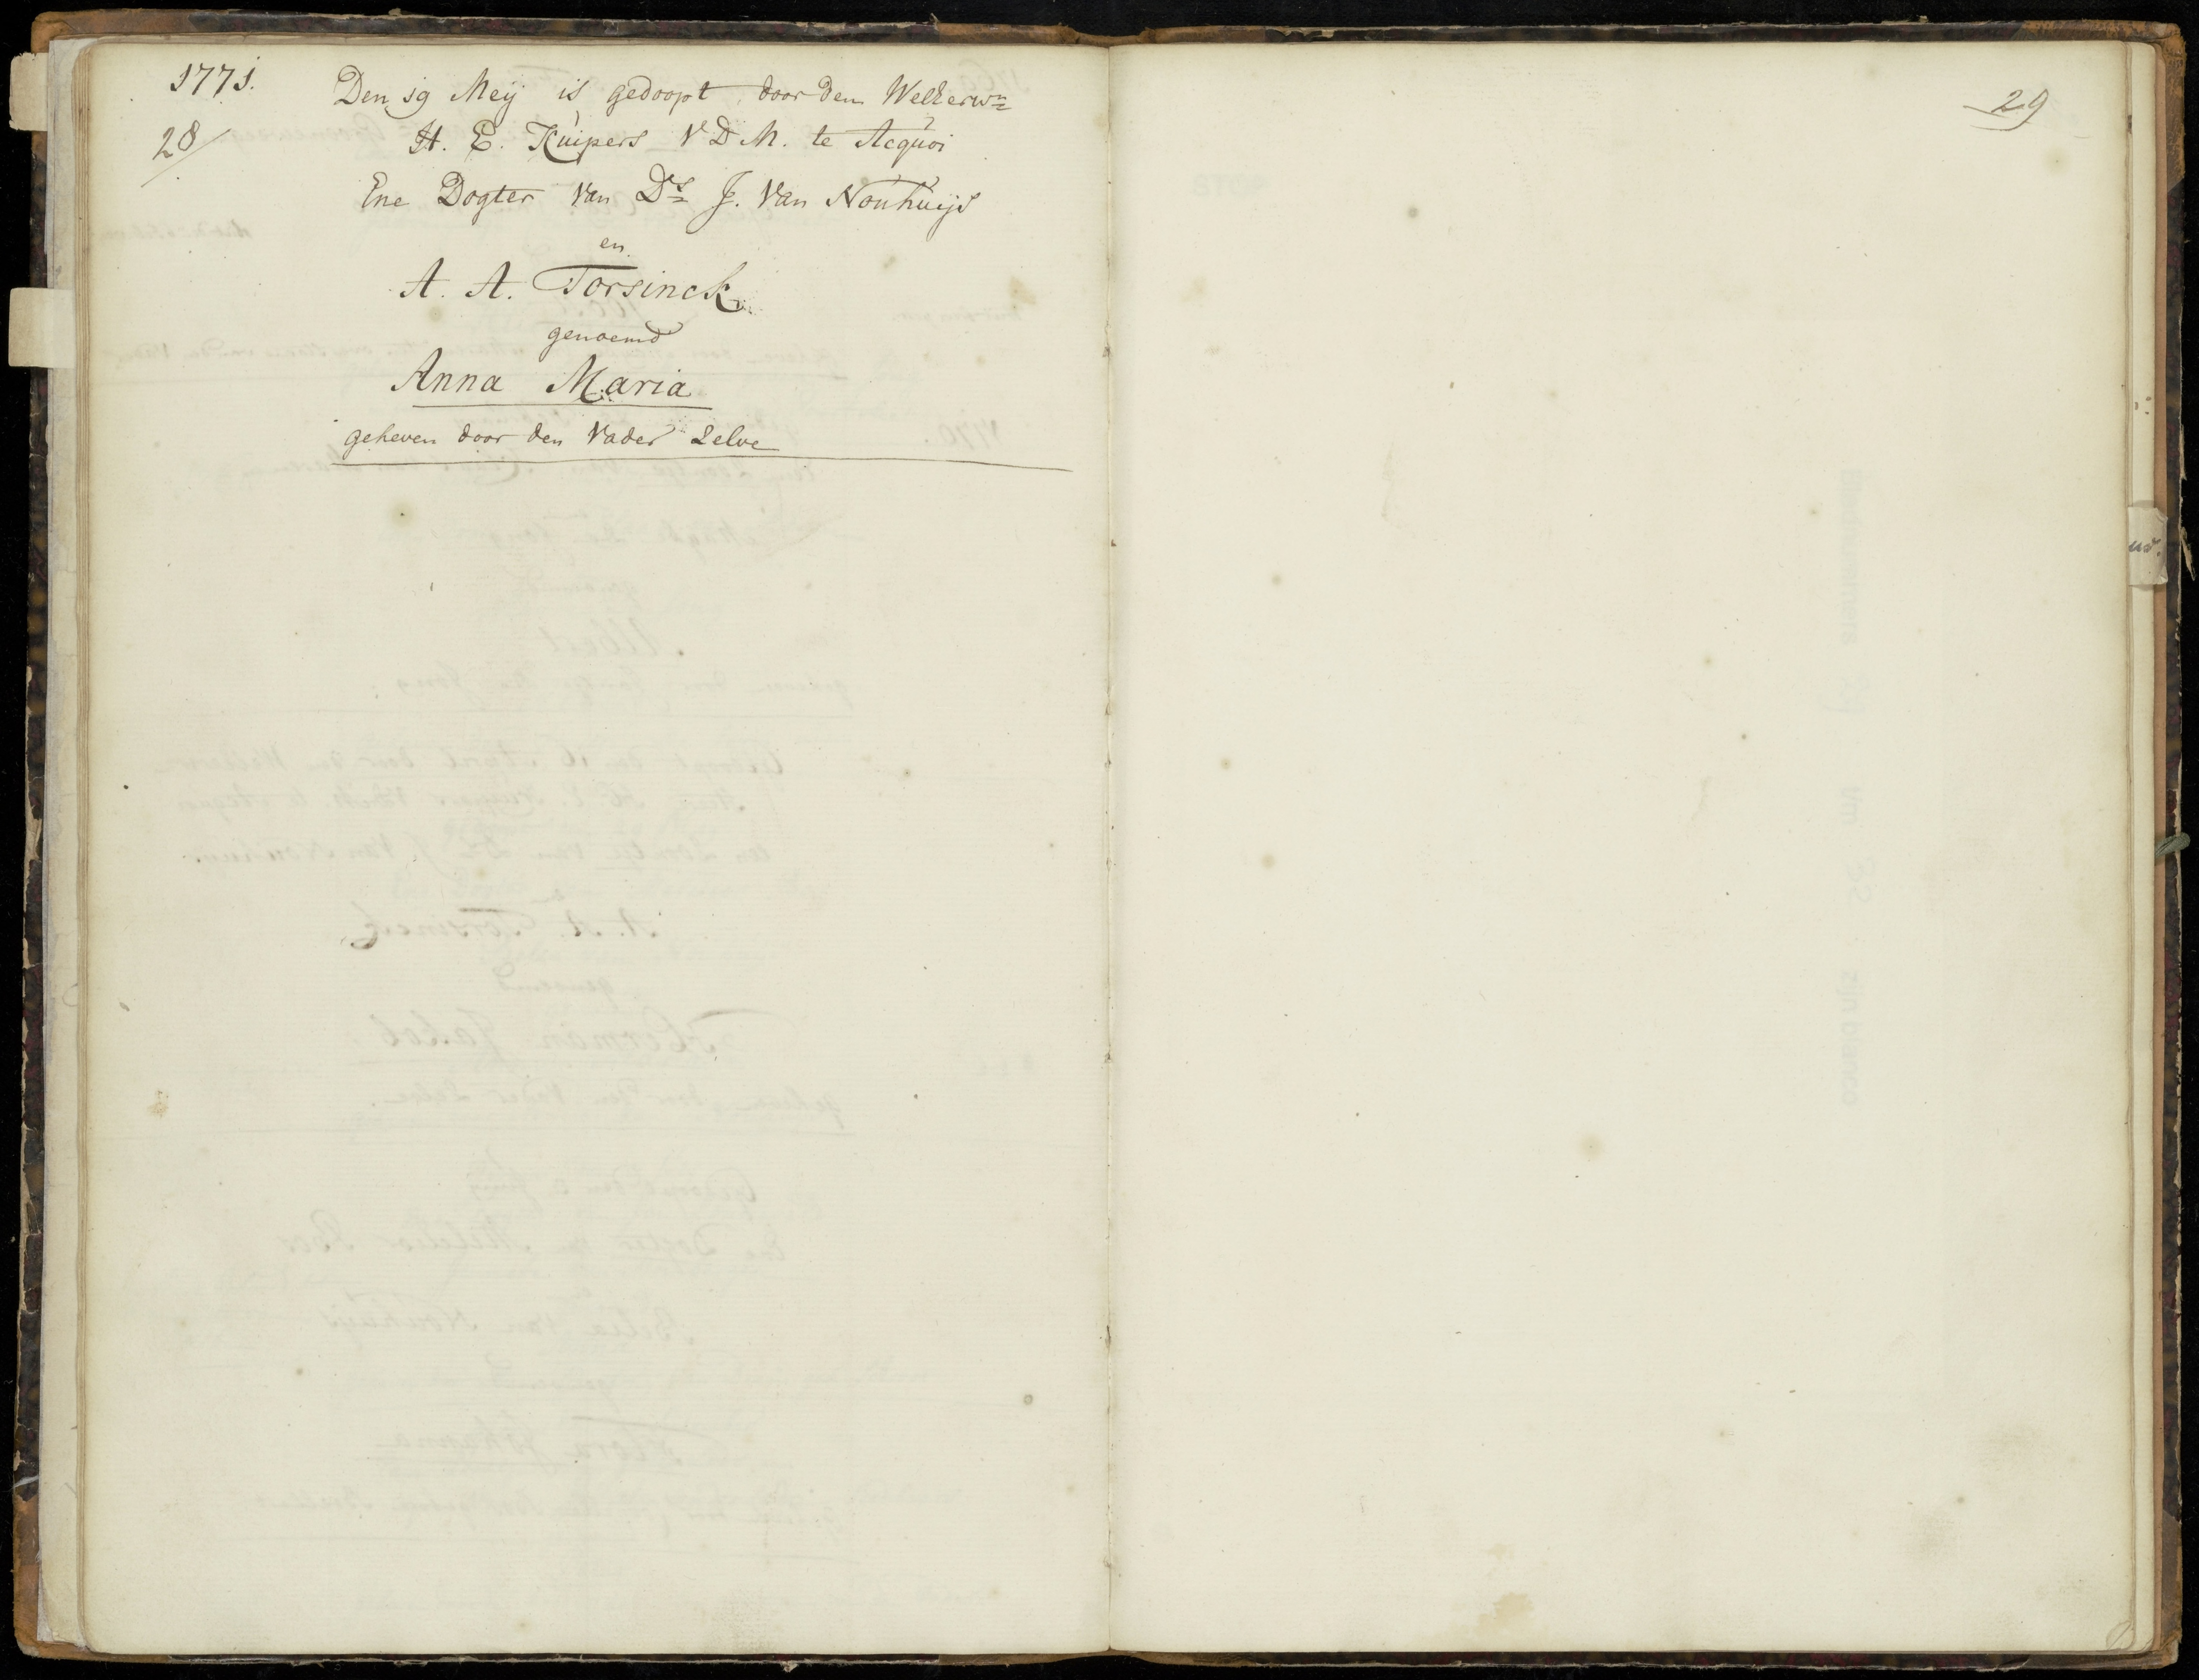 1771.
28
Den 19 Meij is gedoopt door den WelEerwn
H. E. Kuipers V D M. te Acquoi
Ene Dogter van Ds J. Van Nouhuijs
en
A. A. Torsinck
genoemd
Anna Maria
geheven door den Vader Selve
29